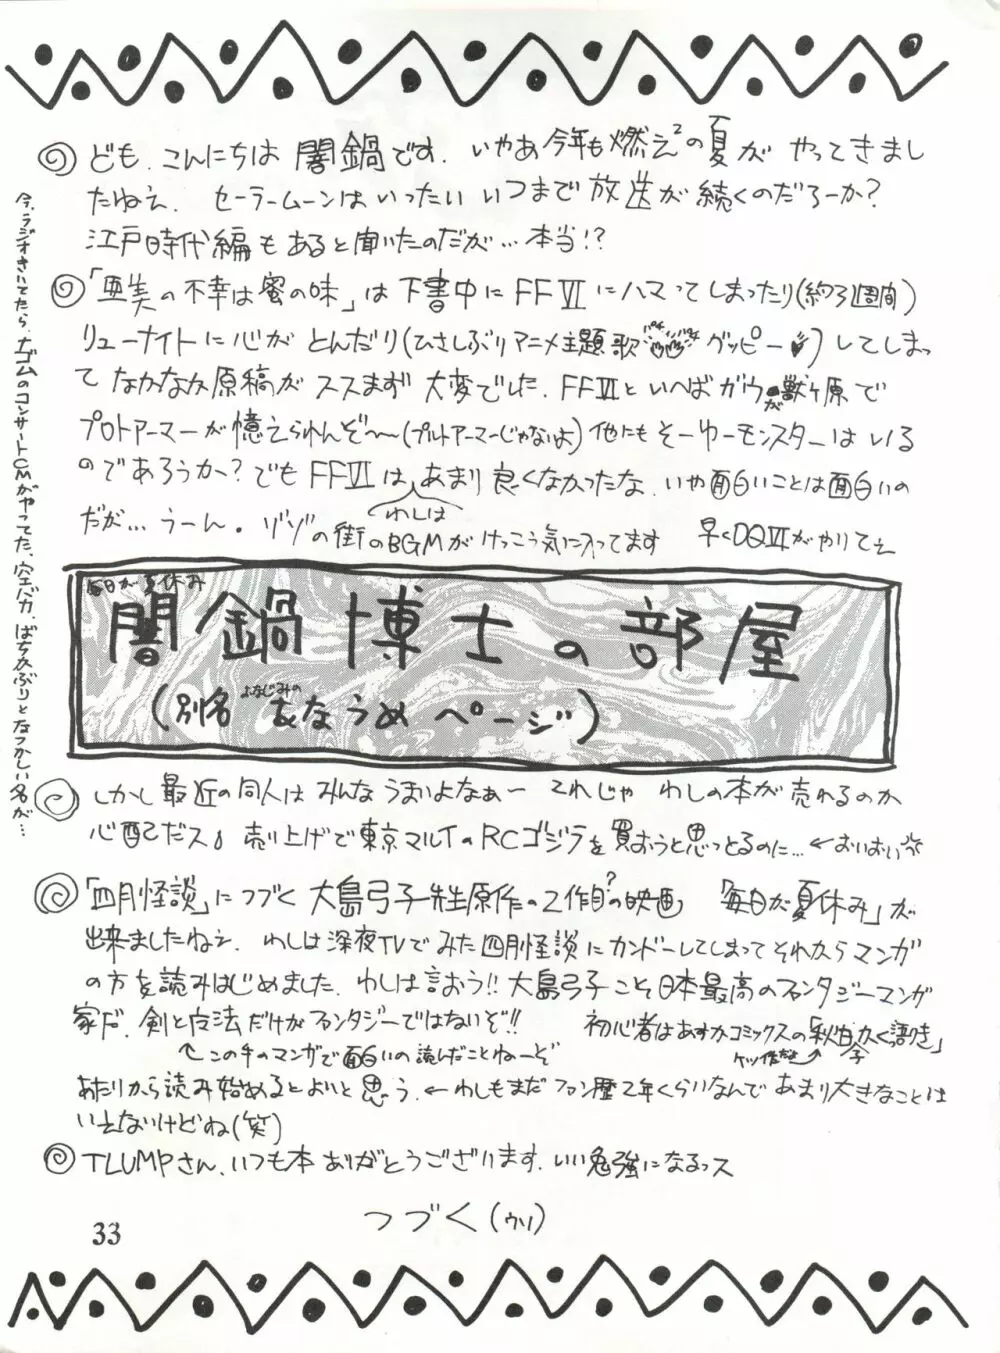 ども、こんにちは 闇鍋です。いやあ今年も燃え²の夏が やってきまし
たねえ、 セーラームーンはいったい いつまで 放送が 続くのだろーか？
江戸時代編もあると聞いたのだが…本当!?
「亜美の不幸は蜜の味」は下書中にFFⅥにハマってしまったり(約3週間)
リューナイトに心が とんだり(ひさしぶりアニメ主題歌 グッピー)してしまっ
て なかなか原稿が ススまず 大変でした、FFⅥといへばガウが獣ヶ原で
プロトアーマーが憶えられんぞ〜(プルトアーマーじゃないよ)他にもそーゆーモンスターはいる
のであろうか？でもFFⅥはあまり良くなかったな、いや面白いことは面白いの
わしは
だが…うーん。ゾゾの街のBGMがけっこう気に入ってます 早くDQⅥがやりてえ
毎日が夏休み
闇鍋博士の部屋
(別名 おなじみの あなうめ ページ)
しかし最近の同人はみんなうまいよなぁー これじゃ わしの本が売れるのか
心配だス。売り上げで東京マルイのRCゴジラを買おうと思っとるのに…←おいおい☆
「四月怪談」につづく大島弓子先生原作の2作目?の映画 「毎日が夏休み」が
出来ましたねえ、 わしは深夜TVでみた四月怪談にカンドーしてしまってそれからマンガ
の方を読みはじめました、わしは言おう!!大島弓子こそ日本最高のファンタジーマンガ
家だ、剣と魔法だけがファンタジーではないぞ!! 初心者はあすかコミックスの「秋日子かく語りき」
↑この手のマンガで面白いの読んだことねーぞ
ケッ作だよ↑
あたりから読み始めるとよいと思う、←わしもまだファン歴2年くらいなんであまり大きなことは
いえないけどね(笑)
TLUMPさん、いつも本ありがとうございます、いい勉強になるっス
つづく(ウソ)
33
今、ラジオきいてたら、ナゴムのコンサートCMがやってた、空バカ、ばちかぶりとなつかしい名が…